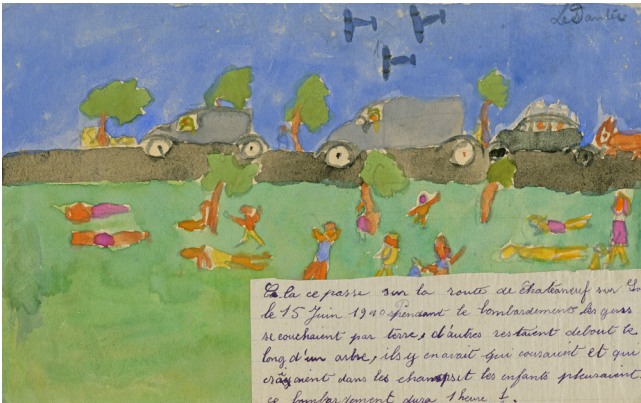 Le Dantec
Ce la ce passe sur la route de Chateauneuf sur Lo
le 15 Juin 1940 Pendant le bombardement les gens
se couchaient par terre, d'autres restaient debout le
long d'un arbre, ils y en avait qui couraient et qui
criaient dans les champs et les enfants pleuraient
ce bombardement dura 1 heure